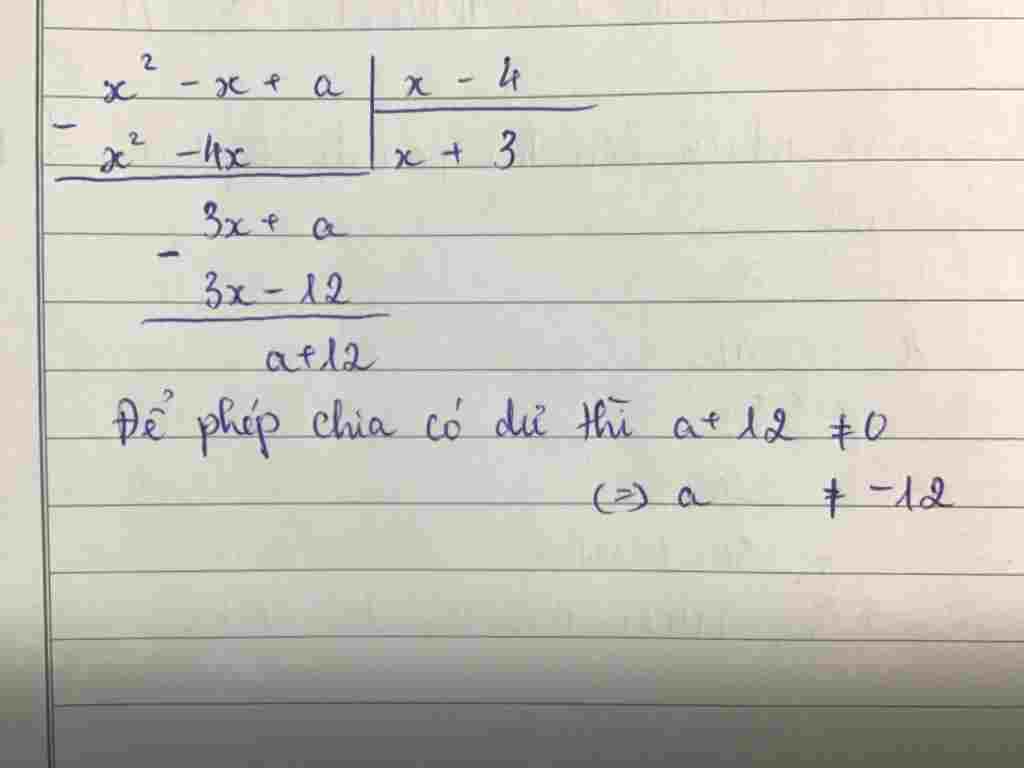 x² - x + a | x - 4
- x² - 4x | x + 3
3x + a
- 3x - 12
a + 12
Để phép chia có dư thì a + 12 ≠ 0
(=) a ≠ -12